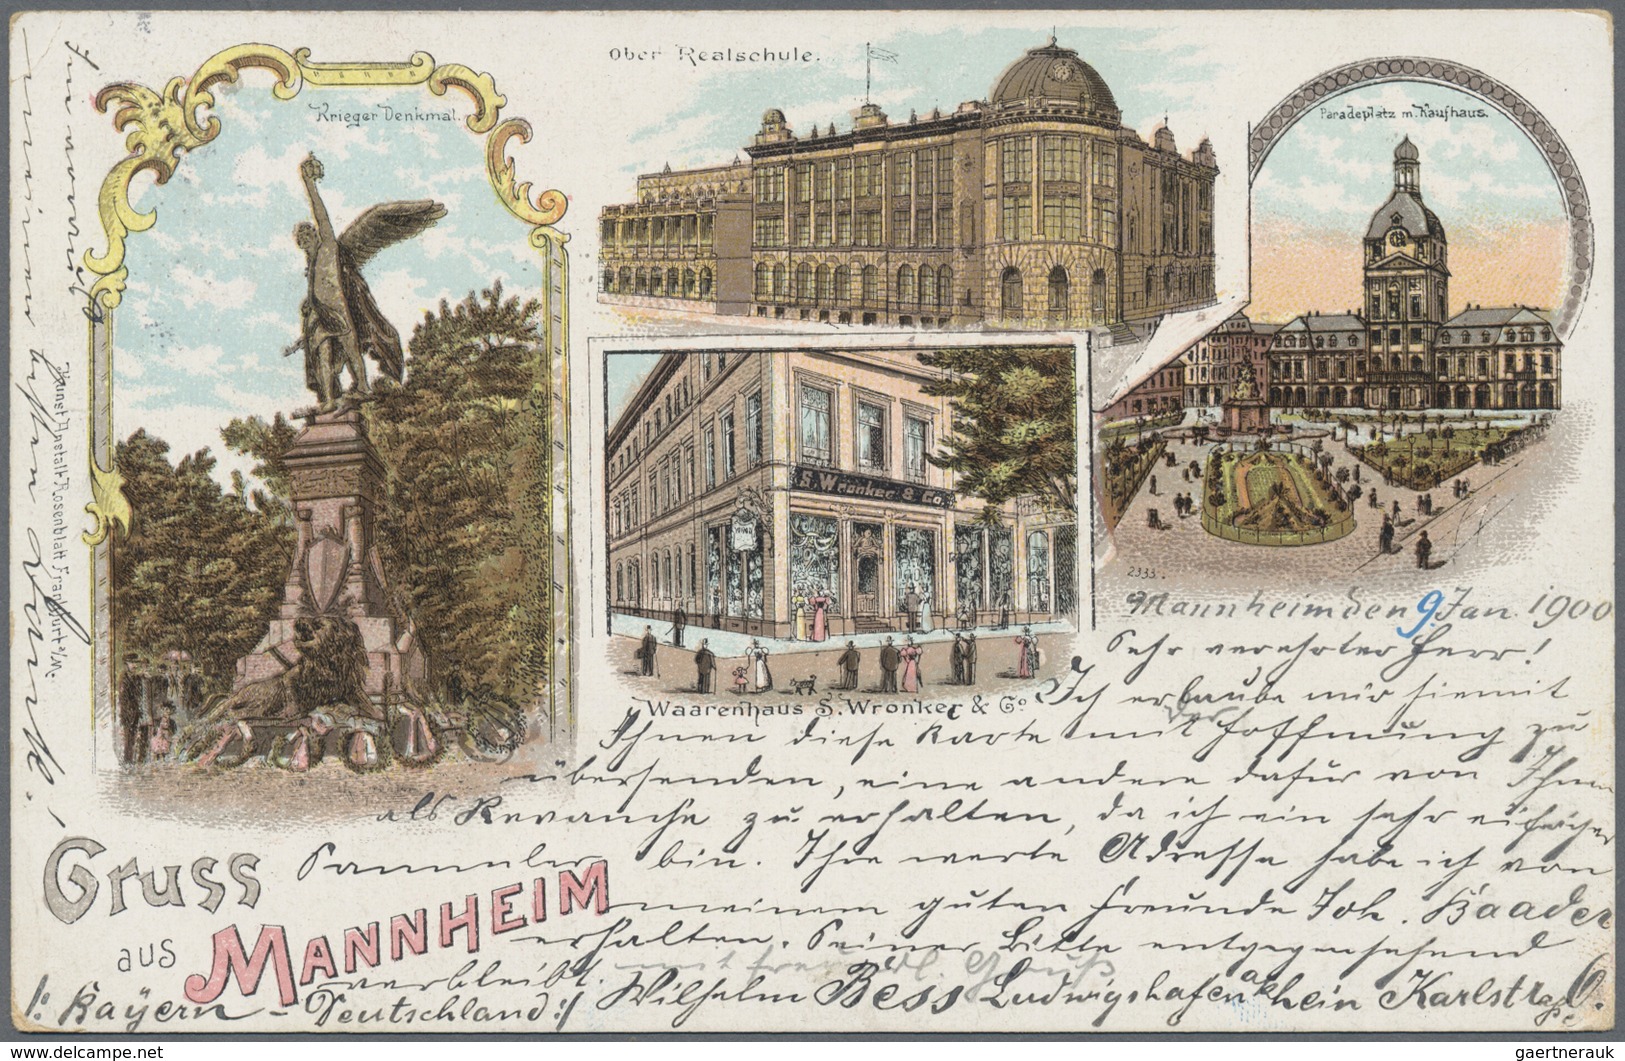 Krieger Denkmal.
Ober Realschule.
Paradeplatz m. Kaufhaus.
S. Wronker & Co.
Waarenhaus S. Wronker & Co
2333.
Kunst Anstalt Rosenblatt Frankfurt a/M.
Gruss
aus MANNHEIM
Mannheim den 9. Jan. 1900
Sehr verehrter Herr!
Ich erlaube mir hiemit
Ihnen diese Karte mit der Hoffnung zu
übersenden, eine andere dafür von Ihnen
als Revanche zu erhalten, da ich ein sehr eifriger
Sammler bin. Ihre werte Adresse habe ich von
meinem guten Freunde Joh. Baader
erhalten. Seiner Bitte entgegensehend
verbleibt mit freundl. Gruß
Wilhelm Bess Ludwigshafen a/Rhein Karlstraße 6.
/: Bayern - Deutschland :/
Im voraus
meinen besten Dank!
gaertnerauk